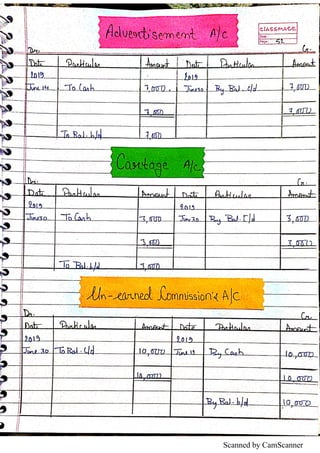 Advertisement A/c
classmate
Date
Page 51
Dr. Cr.
Date Particular Amount Date Particular Amount
2019 2019
June 14 To Cash 7,000 June 30 By Bal. c/d 7,000
7,000 7,000
To Bal. b/d 7,000
Cartage A/c
Dr. Cr.
Date Particular Amount Date Particular Amount
2019 2019
June 30 To Cash 3,500 June 30 By Bal. c/d 3,500
3,500 3,500
To Bal. b/d 3,500
Un-earned Commission's A/C
Dr. Cr.
Date Particular Amount Date Particular Amount
2019 2019
June 30 To Bal. c/d 10,000 June 19 By Cash 10,000
10,000 10,000
By Bal. b/d 10,000
Scanned by CamScanner